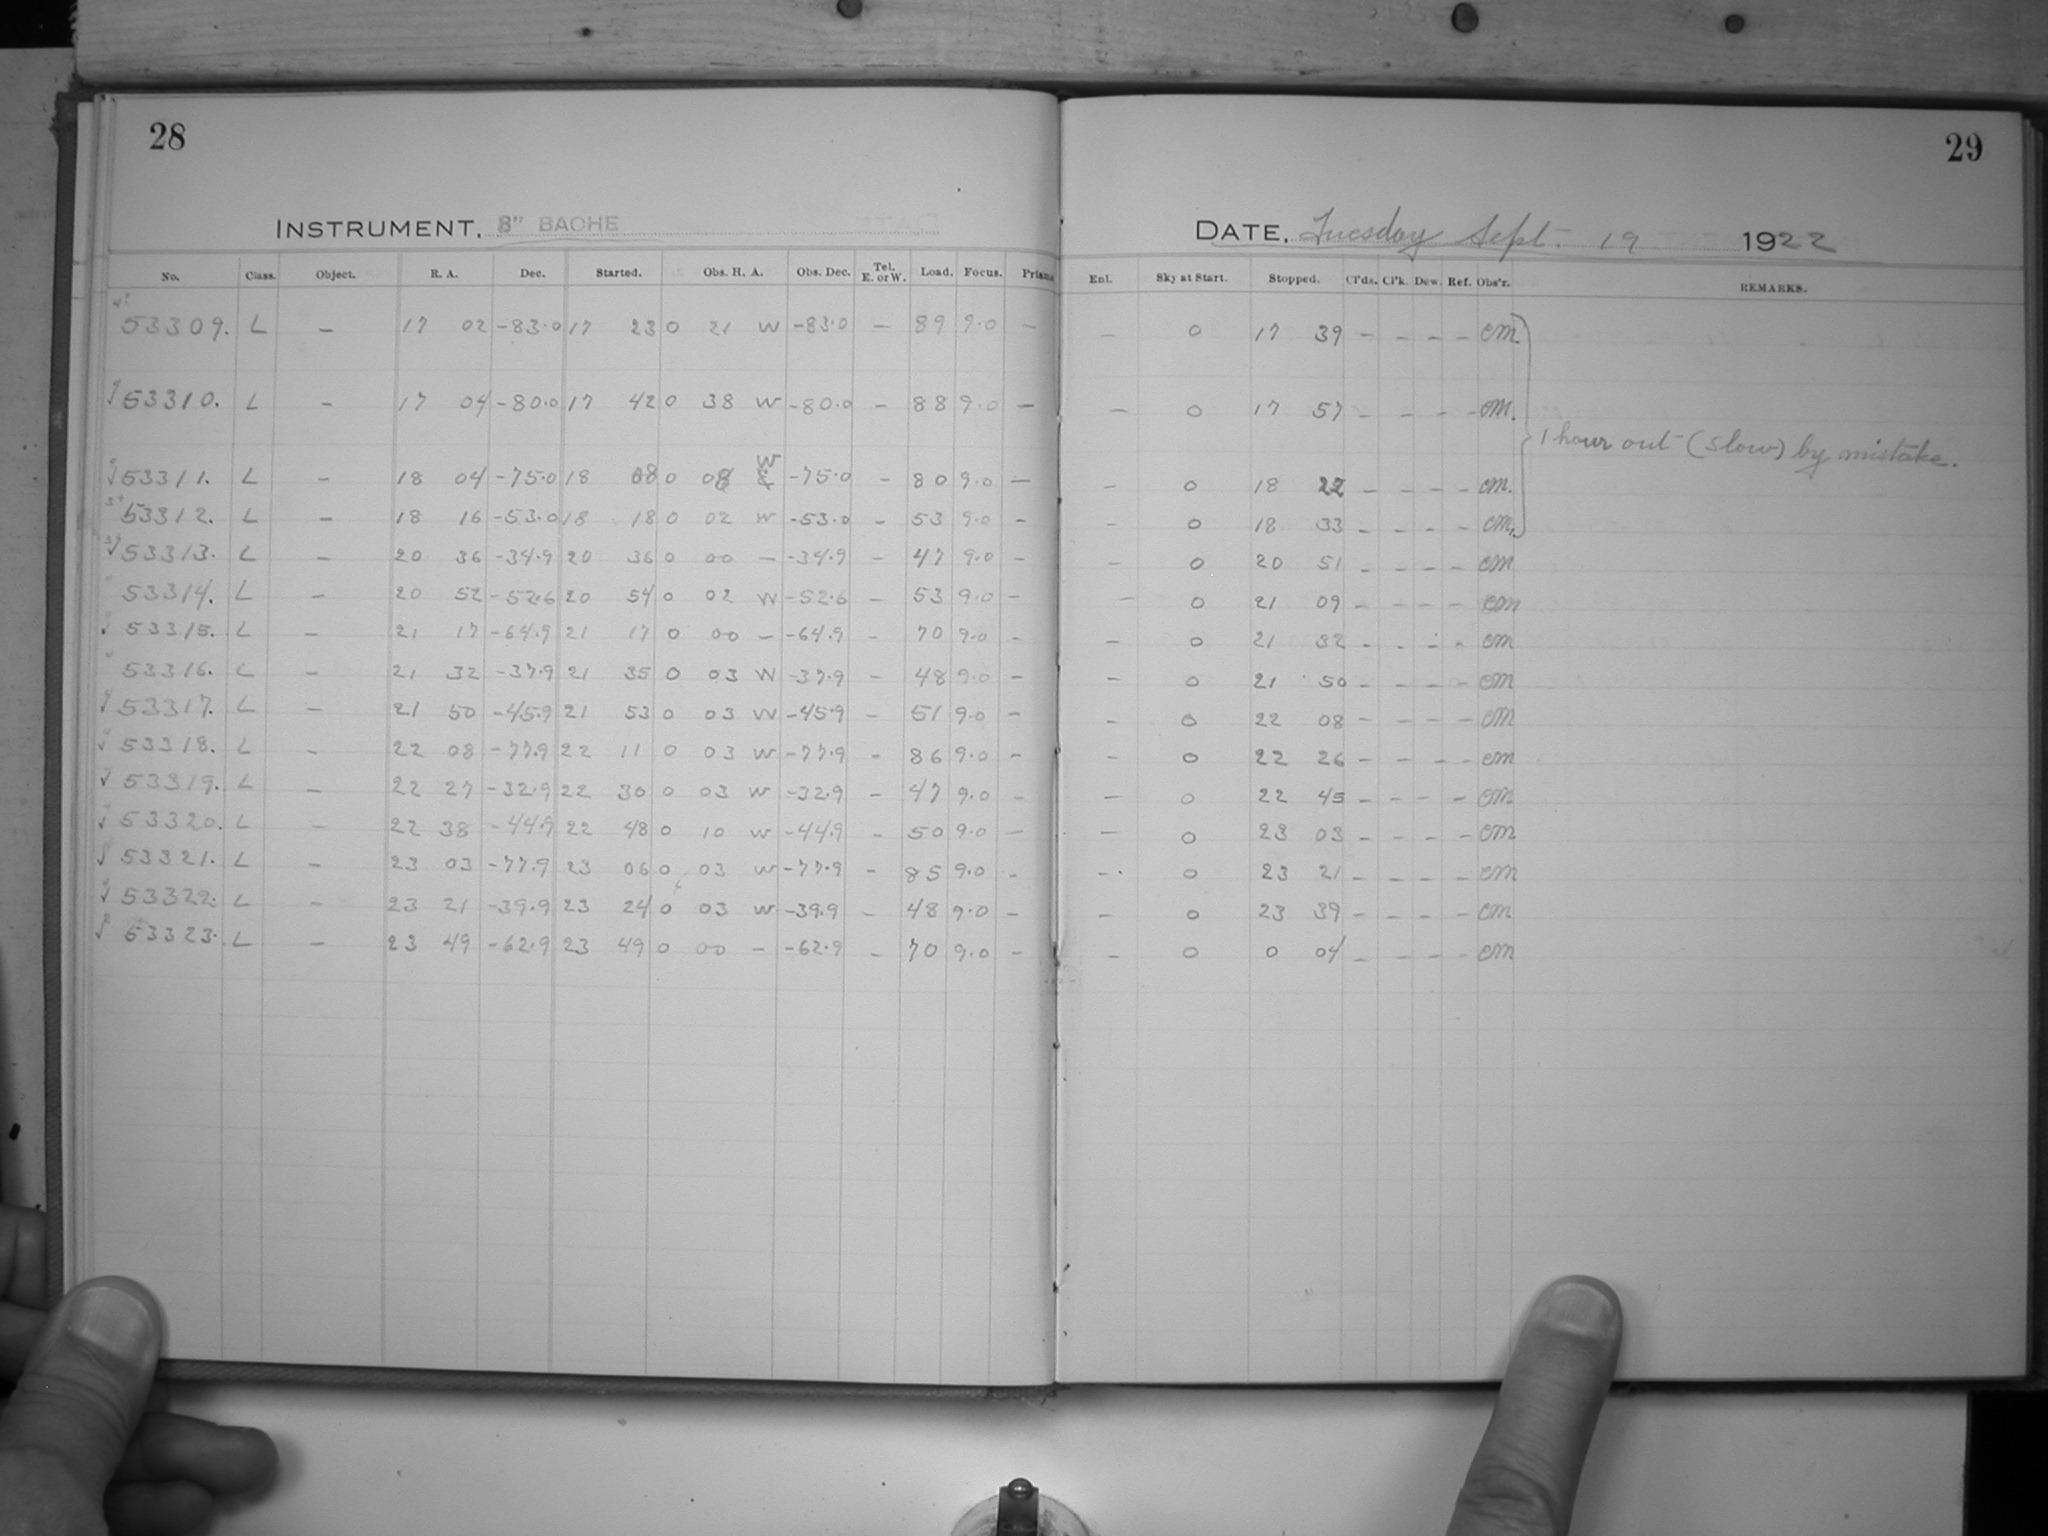 28
INSTRUMENT. 8" BACHE
No. Class. Object. R. A. Dec. Started. Obs. H. A. Obs. Dec. Tel. E. or W. Load. Focus. Prism
53309. L – 17 02 -83.0 17 23 0 21 W -83.0 – 89 9.0 –
53310. L – 17 04 -80.0 17 42 0 38 W -80.0 – 88 9.0 –
53311. L – 18 04 -75.0 18 08 0 08 W -75.0 – 80 9.0 –
53312. L – 18 16 -53.0 18 18 0 02 W -53.0 – 53 9.0 –
53313. L – 20 36 -34.9 20 36 0 00 – -34.9 – 47 9.0 –
53314. L – 20 52 -52.6 20 54 0 02 W -52.6 – 53 9.0 –
53315. L – 21 17 -64.9 21 17 0 00 – -64.9 – 70 9.0 –
53316. L – 21 32 -37.9 21 35 0 03 W -37.9 – 48 9.0 –
53317. L – 21 50 -45.9 21 53 0 03 W -45.9 – 51 9.0 –
53318. L – 22 08 -77.9 22 11 0 03 W -77.9 – 86 9.0 –
53319. L – 22 27 -32.9 22 30 0 03 W -32.9 – 47 9.0 –
53320. L – 22 38 -44.9 22 48 0 10 W -44.9 – 50 9.0 –
53321. L – 23 03 -77.9 23 06 0 03 W -77.9 – 85 9.0 –
53322. L – 23 21 -39.9 23 24 0 03 W -39.9 – 48 9.0 –
53323. L – 23 49 -62.9 23 49 0 00 – -62.9 – 70 9.0 –
29
DATE. Tuesday Sept. 19 1922
Enl. Sky at Start. Stopped. Cl'ds. Cl'k. Dew. Ref. Obs'r. REMARKS.
– 0 17 39 – – – – CM.
– 0 17 57 – – – – CM.
1 hour out (slow) by mistake.
– 0 18 22 – – – – CM.
– 0 18 33 – – – – CM.
– 0 20 51 – – – – CM
– 0 21 09 – – – – CM
– 0 21 32 – – – – CM
– 0 21 50 – – – – CM
– 0 22 08 – – – – CM
– 0 22 26 – – – – CM
– 0 22 45 – – – – CM
– 0 23 03 – – – – CM
– 0 23 21 – – – – CM
– 0 23 39 – – – – CM
– 0 0 04 – – – – CM